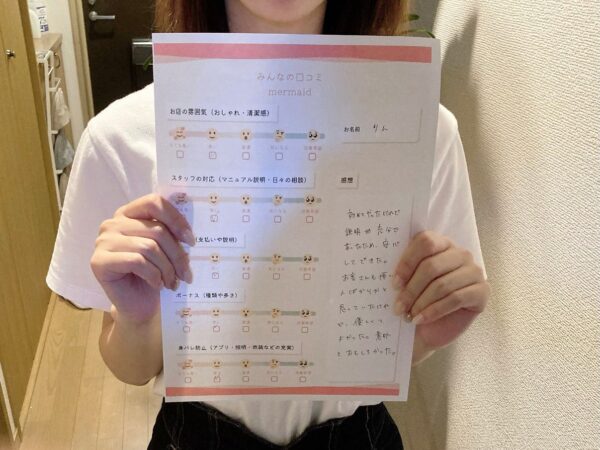 みんなの口コミ
mermaid
お店の雰囲気（おしゃれ・清潔感）
お名前
りん
スタッフの対応（マニュアル説明・日々の相談）
感想
初めてだったけれど
説明が充分で
あったため、安心
してできた。
お客さんも怖い
人ばかりかと
思っていたけれ
ど、優しくて
よかった。意外
とおもしろかった。
支払いや説明）
ボーナス（種類や多さ）
身バレ防止（アプリ・照明・衣装などの充実）